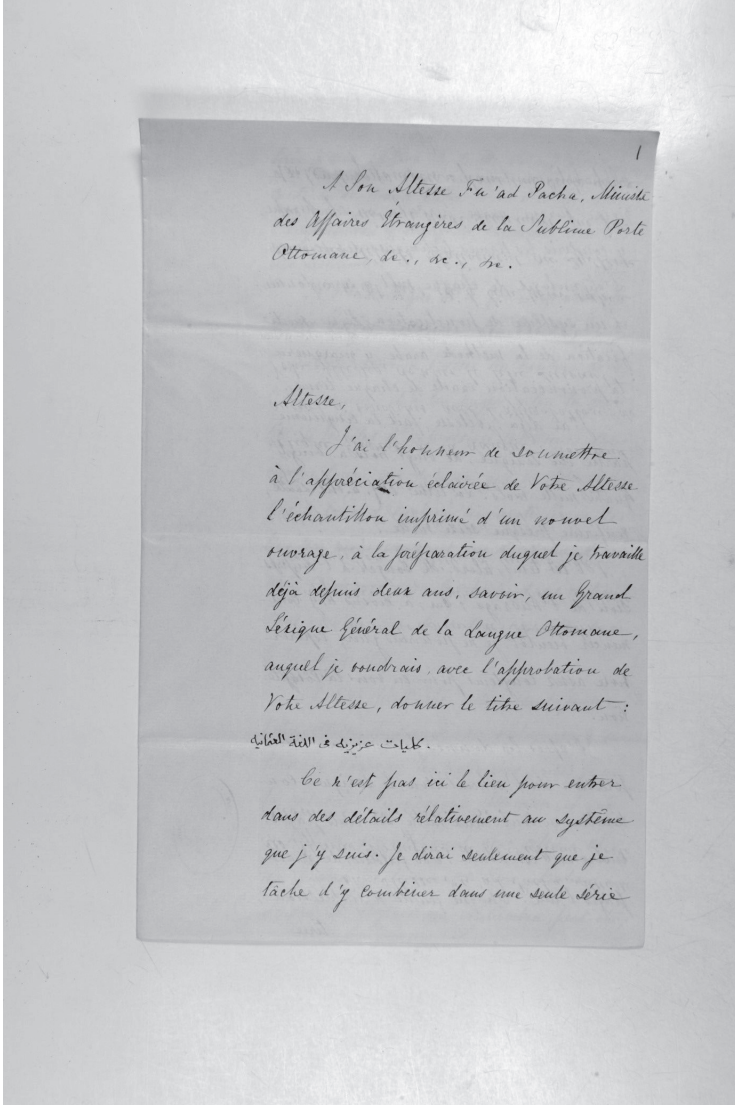 1
A Son Altesse Fu'ad Pacha, Ministre
des Affaires Étrangères de la Sublime Porte
Ottomane, &c., &c., &c.
Altesse,
J'ai l'honneur de soumettre
à l'appréciation éclairée de Votre Altesse
l'échantillon imprimé d'un nouvel
ouvrage, à la préparation duquel je travaille
déjà depuis deux ans, savoir, un Grand
Léxique Général de la Langue Ottomane,
auquel je voudrais, avec l'approbation de
Votre Altesse, donner le titre suivant :
كليات عزيزيه فى اللغة العثمانيه.
Ce n'est pas ici le lieu pour entrer
dans des détails rélativement au système
que j'y suis. Je dirai seulement que je
tâche d'y combiner dans une seule série